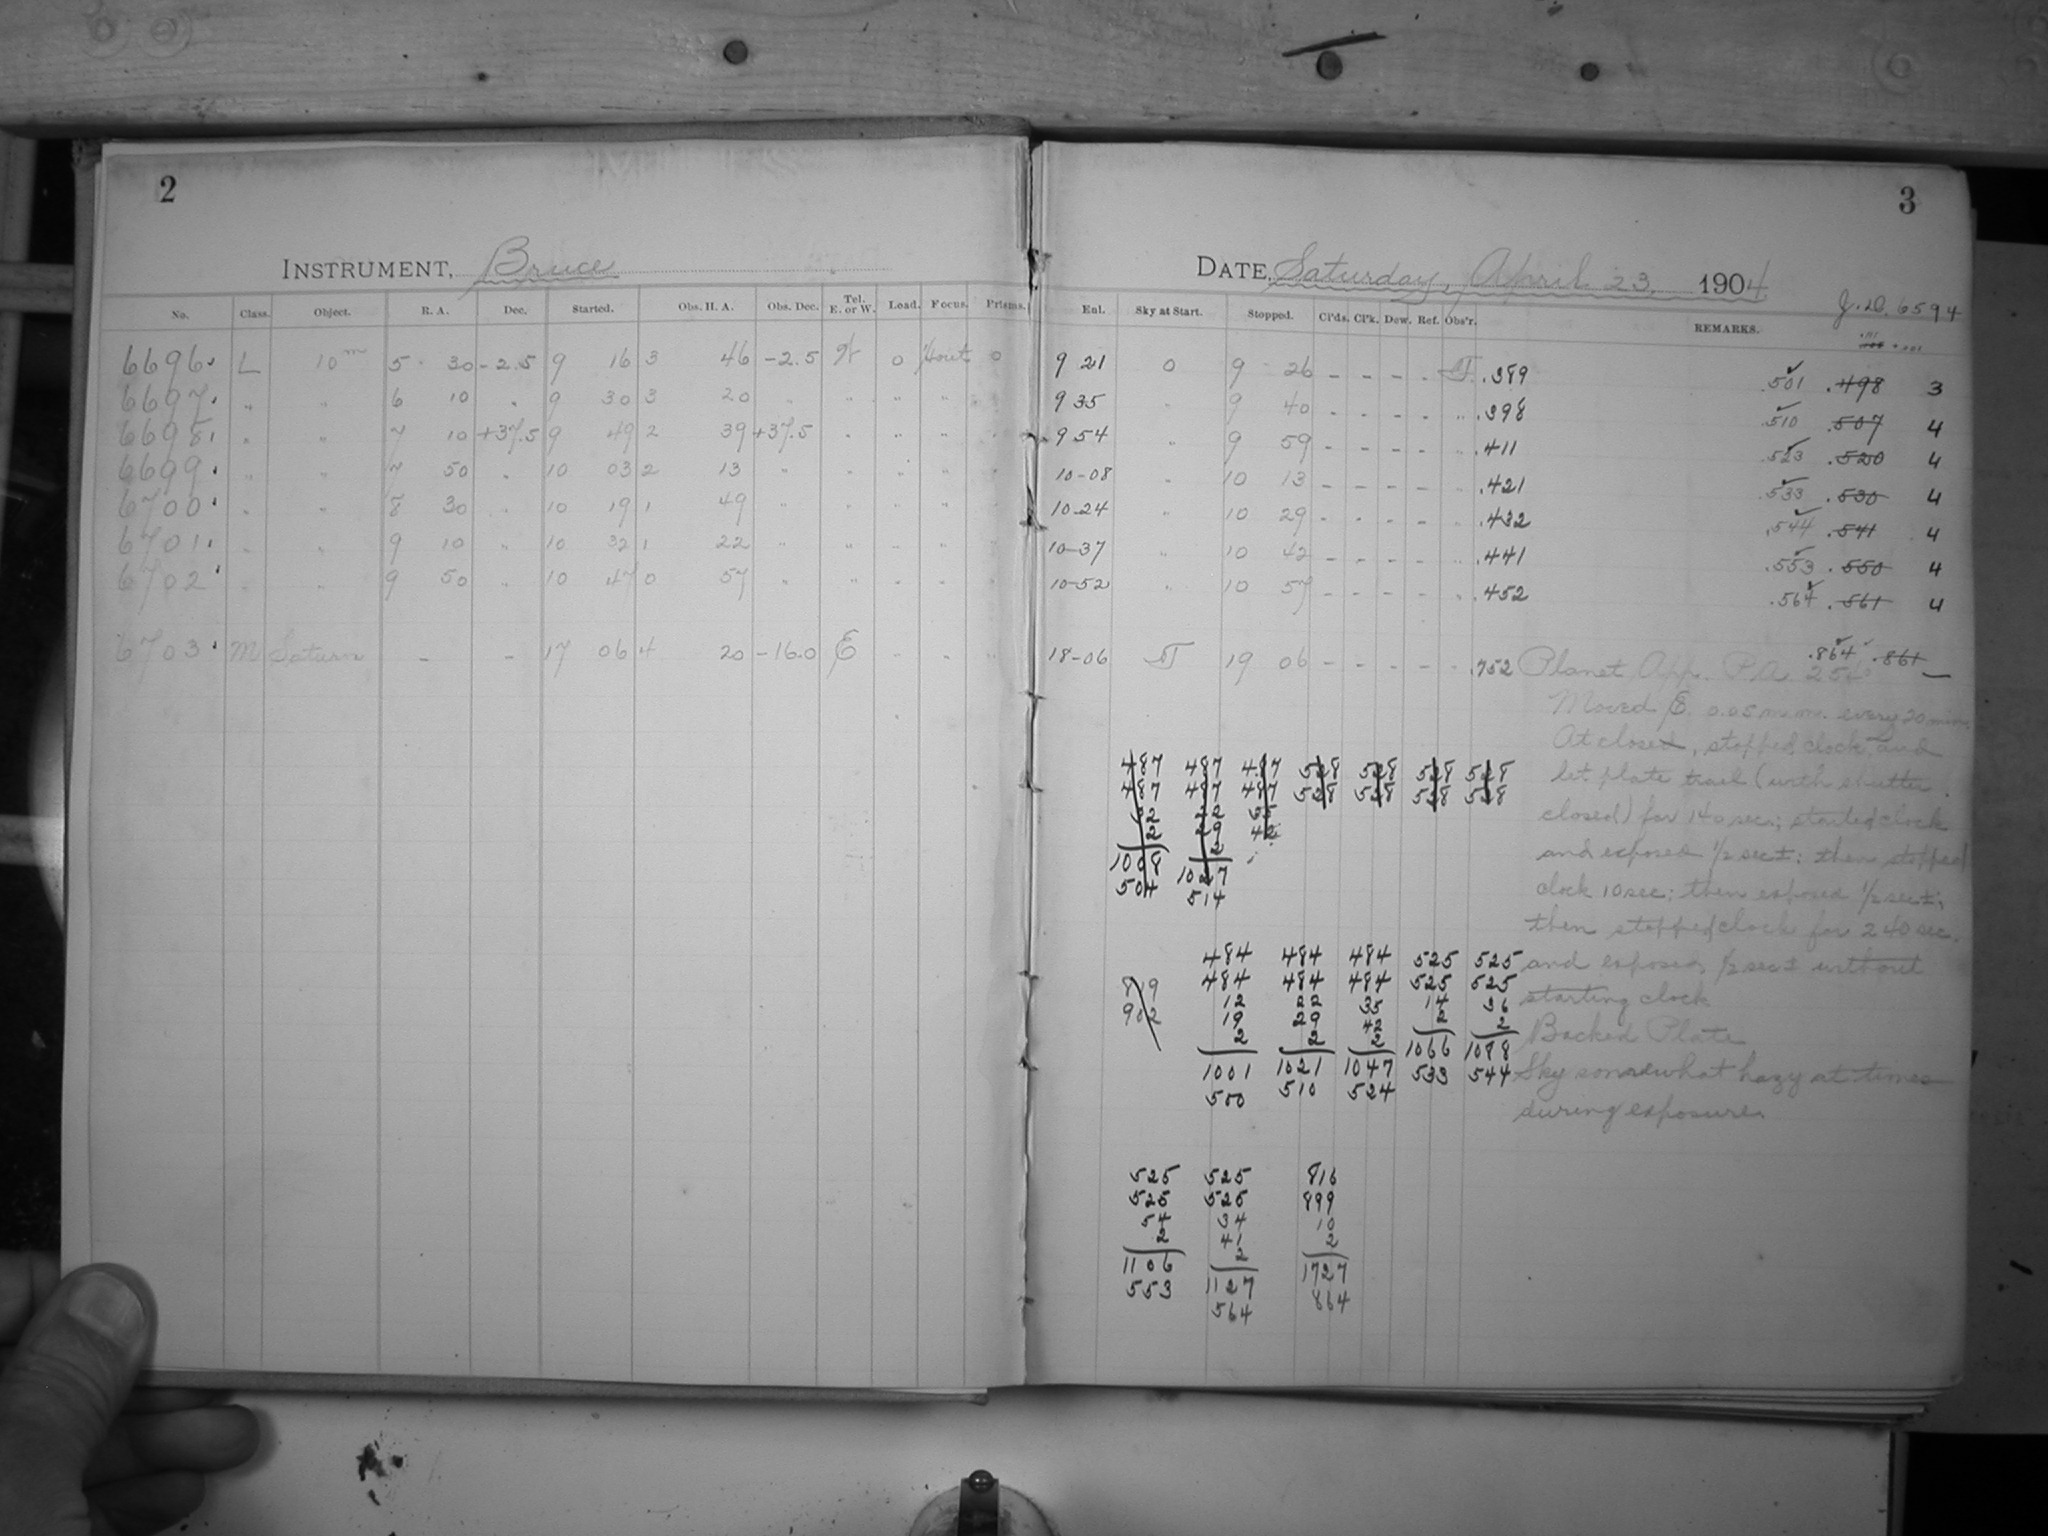 2
INSTRUMENT, Bruce
No. Class. Object. R. A. Dec. Started. Obs. H. A. Obs. Dec. Tel. E. or W. Load. Focus. Prisms.
6696 L 10m 5 30 -2.5 9 16 3 46 -2.5 W 0 0
6697 " " 6 10 " 9 30 3 20 " " " " "
6698 " " 7 10 +37.5 9 49 2 39 +37.5 " " " "
6699 " " 7 50 " 10 03 2 13 " " " " "
6700 " " 8 30 " 10 19 1 49 " " " " "
6701 " " 9 10 " 10 32 1 22 " " " " "
6702 " " 9 50 " 10 47 0 57 " " " " "
6703 M Saturn - - 17 06 4 20 -16.0 E - - "
3
DATE, Saturday, April 23, 1904
J.D. 6594
Enl. Sky at Start. Stopped. Cl'ds. Cl'k. Dew. Ref. Obs'r. REMARKS.
9 21 0 9 26 - - - - .389 .501 .498 3
9 35 " 9 40 - - - - " .398 .510 .507 4
9 54 " 9 59 - - - - " .411 .523 .520 4
10-08 " 10 13 - - - - " .421 .533 .530 4
10-24 " 10 29 - - - - " .432 .544 .541 4
10-37 " 10 42 - - - - " .441 .553 .550 4
10-52 " 10 57 - - - - " .452 .564 .561 4
18-06 19 06 - - - - - .752 .864 .861 -
Planet App. P.A.
Moved E. 0.05 m.m. every 20 min.
At close, stopped clock and
let plate trail (with shutter
closed) for 140 sec.; started clock
and exposed 1/2 sec±; then stopped
clock 10 sec; then exposed 1/2 sec±;
then stopped clock for 240 sec.
and exposed 1/2 sec± without
starting clock
Backed Plate
Sky somewhat hazy at times
during exposure.
487 487 487 528 528 528 528
487 487 487 528 528 528 528
22
2 29 42
2
1008 1027
504 514
484 484 484 525 525
819 484 484 484 525 525
902 12 22 35 14 36
19 29 42 2 2
2 2 2 1066 1088
1001 1021 1047 533 544
500 510 524
525 525 816
525 525 899
54 34 10
2 41 2
1106 2 1727
553 1127 864
564